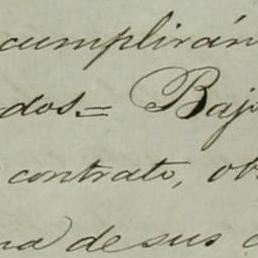 cumplirán
dos = Bajo
contrato, ob
na de sus